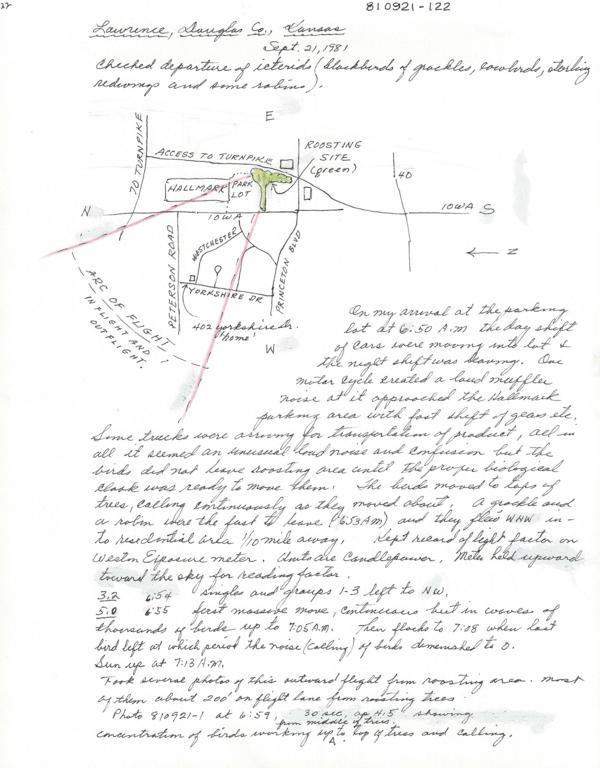 22
810921-122
Lawrence, Douglas Co., Kansas
Sept. 21, 1981
Checked departure of icterids (blackbirds of grackles, cowbirds, starling
redwings and some robins).
E
TO TURNPIKE
ACCESS TO TURNPIKE
ROOSTING
SITE
(green)
HALLMARK
PARK
LOT
40
N
IOWA
IOWA S
PETERSON ROAD
WESTCHESTER
PRINCETON BLVD
← N
YORKSHIRE DR
ARC OF FLIGHT
IN FLIGHT AND
OUTFLIGHT.
402 Yorkshire Dr.
'home'
W
On my arrival at the parking
lot at 6:50 A.M the day shift
of cars were moving into lot &
the night shift was leaving. One
motor cycle created a loud muffler
noise at it approached the Hallmark
parking area with fast shift of gears etc.
Some trucks were arriving for transportation of product, all in
all it seemed an unusual loud noise and confusion but the
birds did not leave roosting area until the proper biological
clock was ready to move them. The birds moved to tops of
trees, calling continuously as they moved about. A grackle and
a robin were the first to leave (6:53 AM) and they flew WNW in-
to residential area 1/10 mile away. Kept record of light factor on
Weston Exposure meter. Units are Candlepower. Meter held upward
toward the sky for reading factor.
3.2 6:54 singles and groups 1-3 left to NW.
5.0 6:55 first massive move, continuous but in waves of
thousands of birds up to 7:05 A.M. Then flocks to 7:08 when last
bird left at which period the noise (calling) of birds diminished to 0.
Sun up at 7:13 A.M.
Took several photos of this outward flight from roosting area. most
of them about 200' on flight lane from roosting trees.
Photo 810921-1 at 6:59, 30 sec, op 4.5 showing
from middle of trees
concentration of birds working up to top of trees and calling.